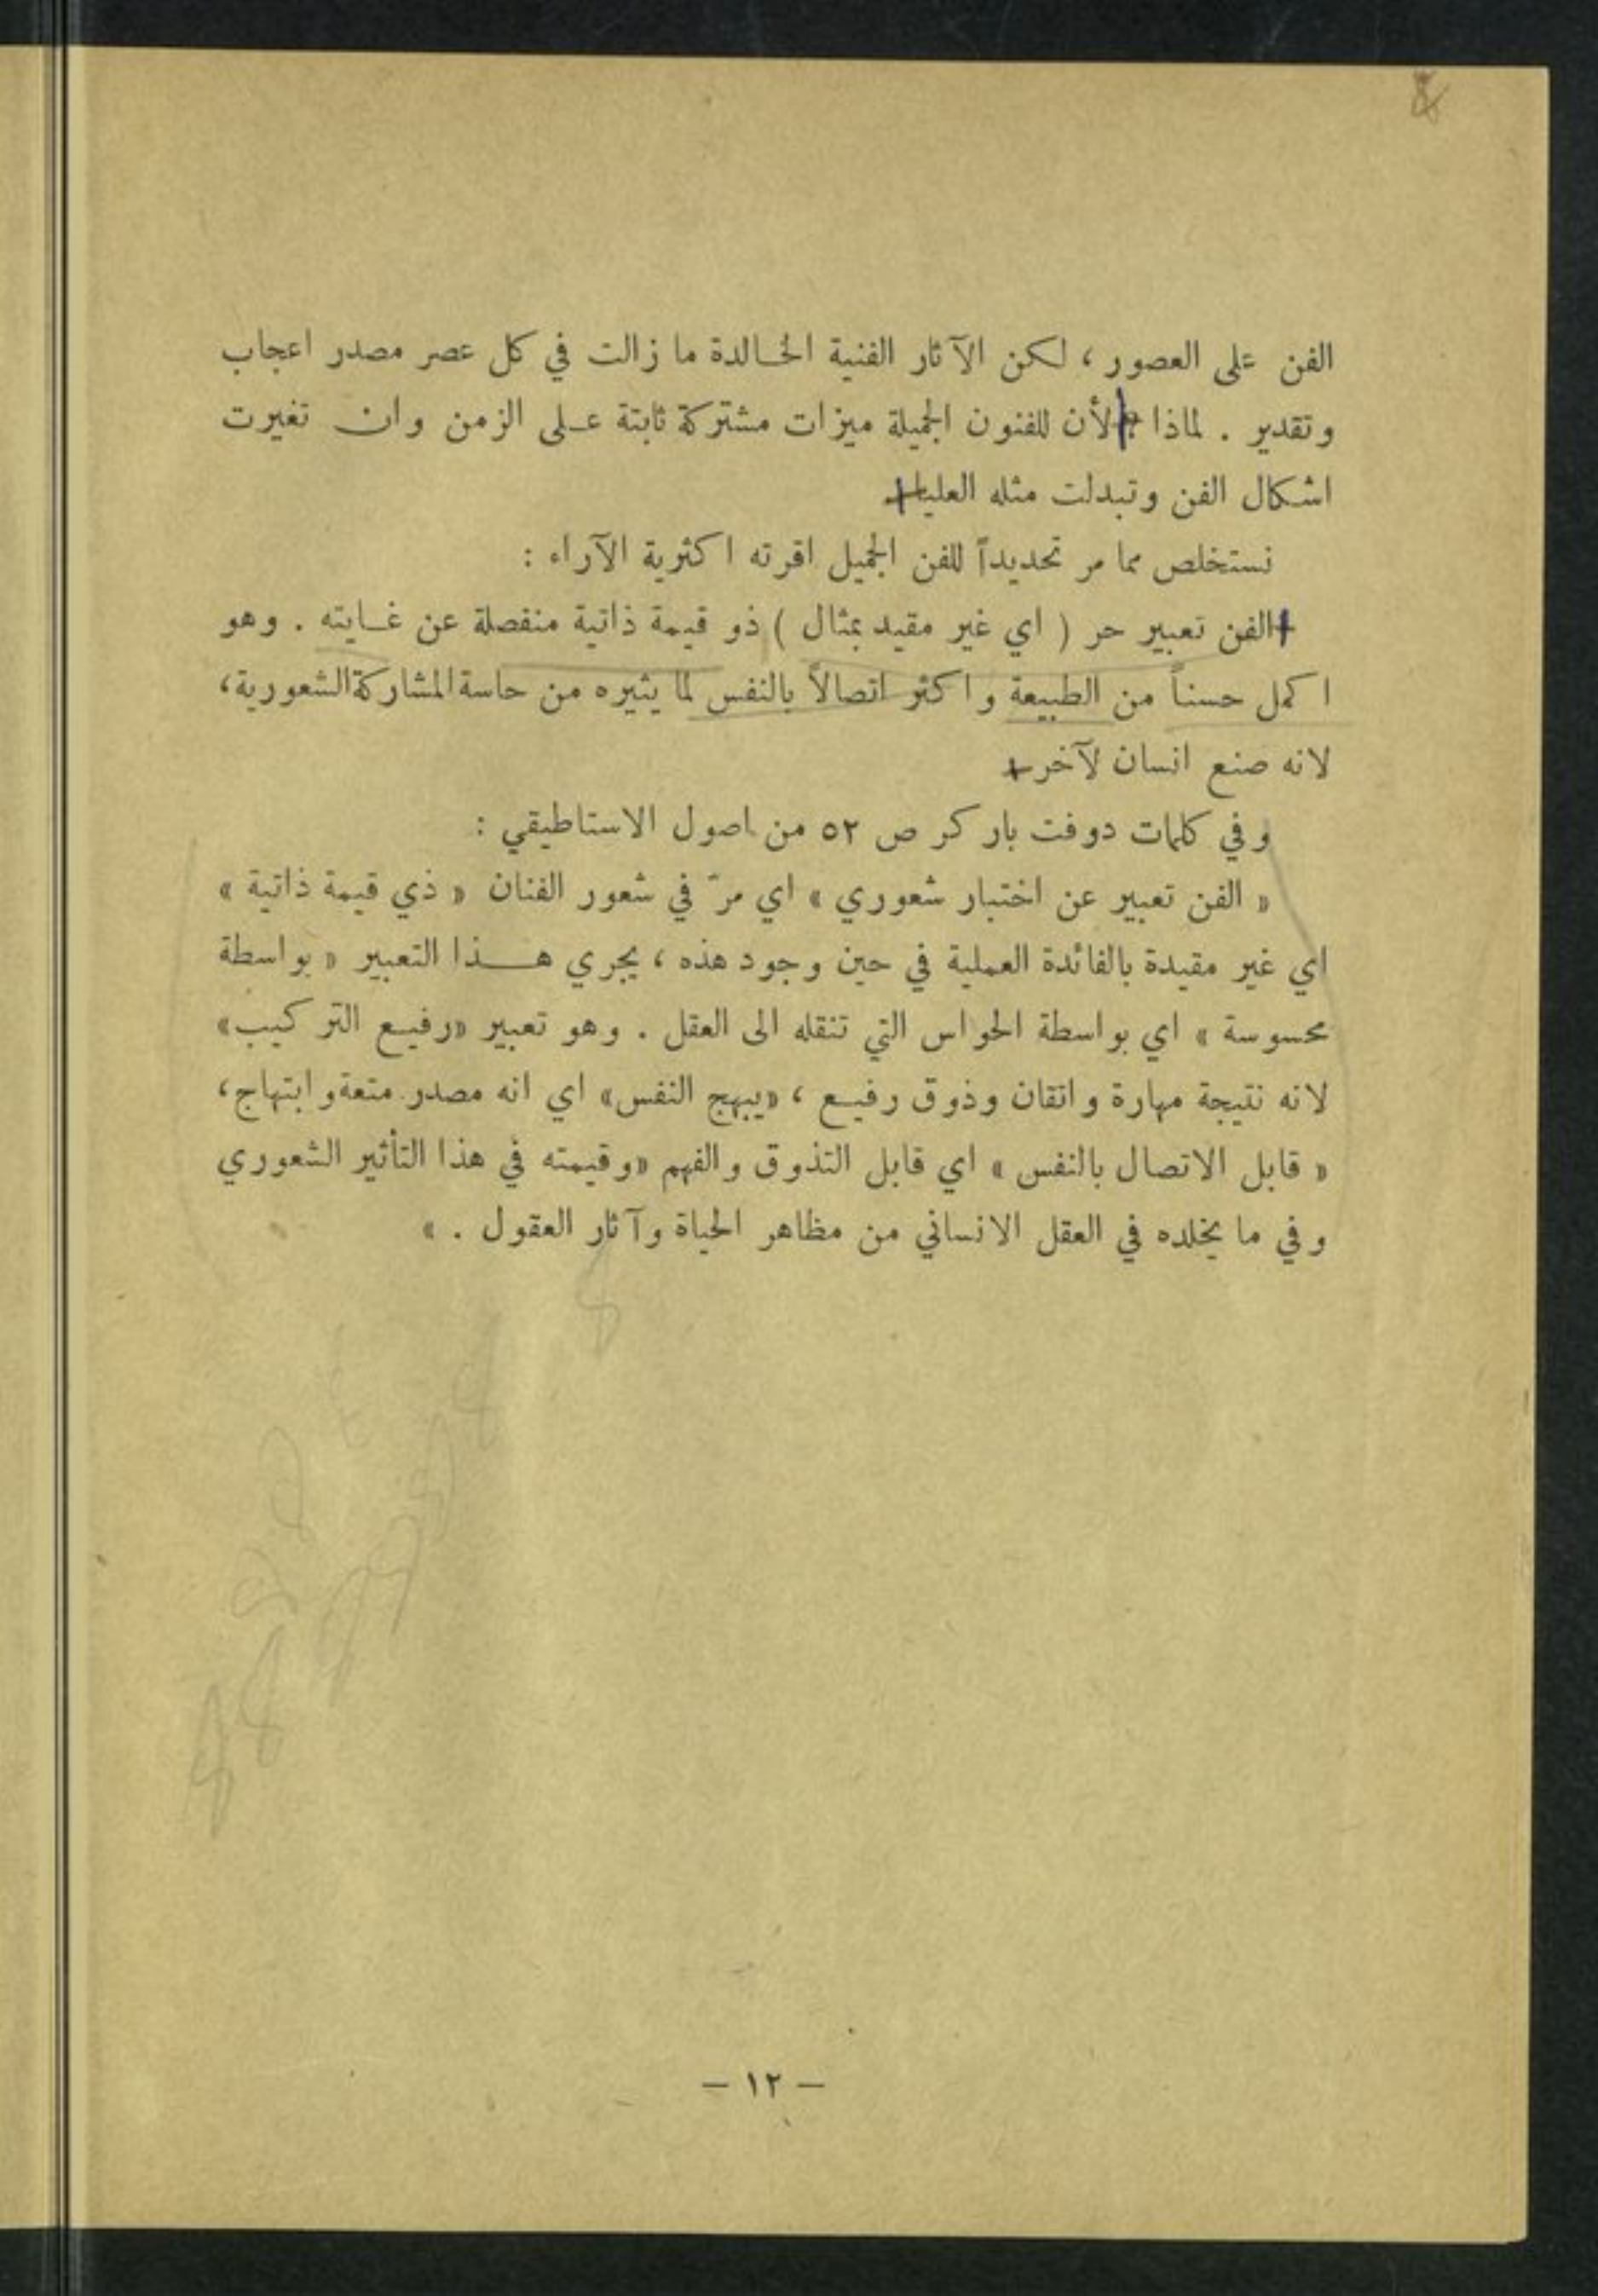 الفن على العصور ، لكن الآثار الفنية الخالدة ما زالت في كل عصر مصدر اعجاب
وتقدير . لماذا ؟ لأن للفنون الجميلة ميزات مشتركة ثابتة على الزمن وان تغيرت
اشكال الفن وتبدلت مثله العليا
نستخلص مما مر تحديداً للفن الجميل اقرته اكثرية الآراء :
الفن تعبير حر ( اي غير مقيد بمثال ) ذو قيمة ذاتية منفصلة عن غايته . وهو
اكمل حسناً من الطبيعة واكثر اتصالاً بالنفس لما يثيره من حاسة المشاركة الشعورية،
لانه صنع انسان لآخر
وفي كلمات دوفت باركر ص ٥٢ من اصول الاستاطيقي :
« الفن تعبير عن اختبار شعوري » اي مرّ في شعور الفنان « ذي قيمة ذاتية »
اي غير مقيدة بالفائدة العملية في حين وجود هذه ، يجري هذا التعبير « بواسطة
محسوسة » اي بواسطة الحواس التي تنقله الى العقل . وهو تعبير «رفيع التركيب»
لانه نتيجة مهارة واتقان وذوق رفيع ، «يبهج النفس» اي انه مصدر متعة وابتهاج،
« قابل الاتصال بالنفس » اي قابل التذوق والفهم «وقيمته في هذا التأثير الشعوري
وفي ما يخلده في العقل الانساني من مظاهر الحياة وآثار العقول . »
— ١٢ —